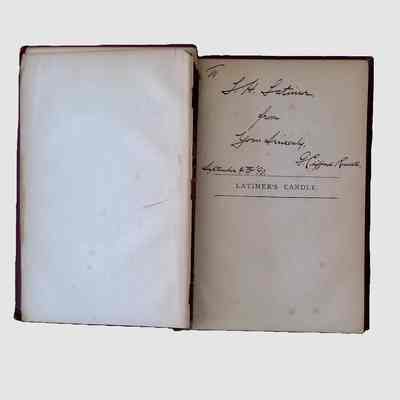 To
H. Latimer,
from
Yours Sincerely,
G. Clifford
September
LATIMER'S CANDLE.